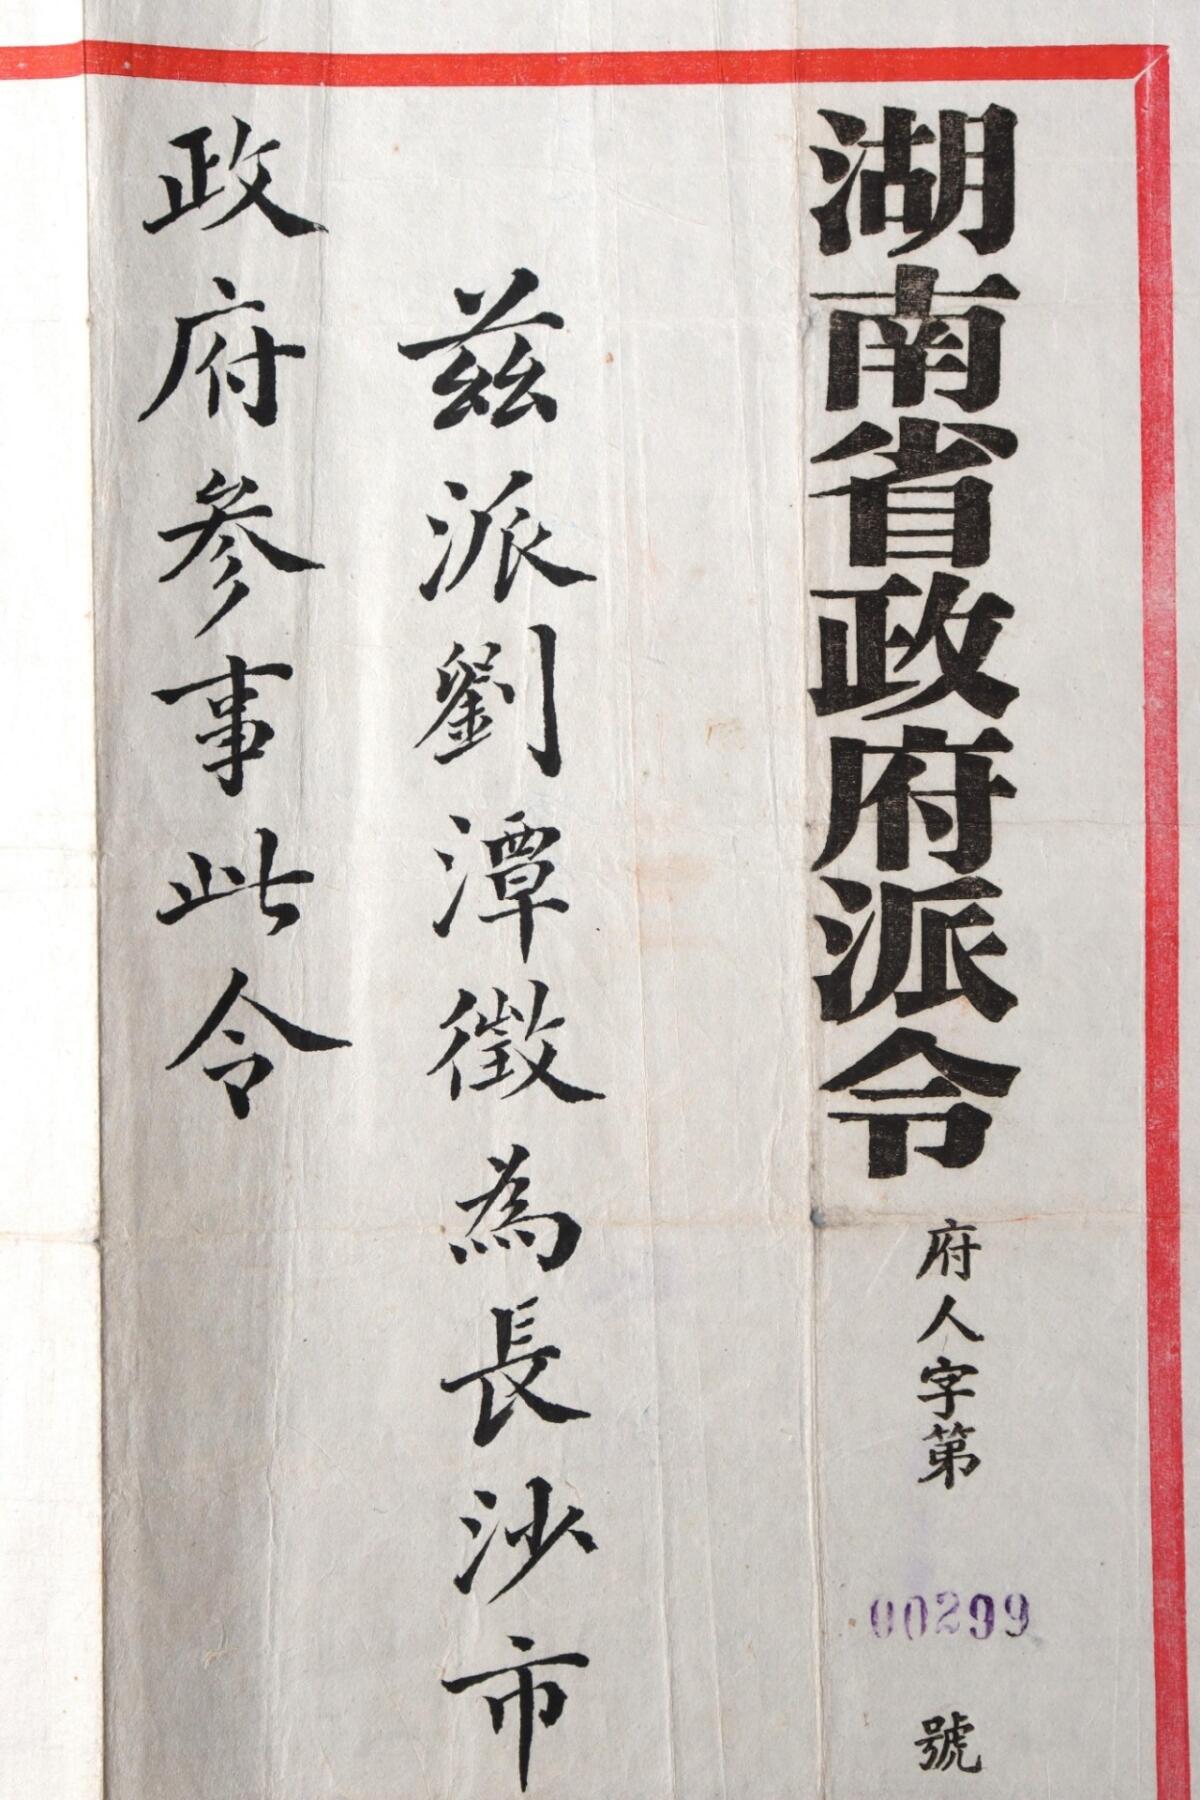 湖南省政府派令
府人字第00299號
茲派劉潭徵為長沙市
政府參事此令